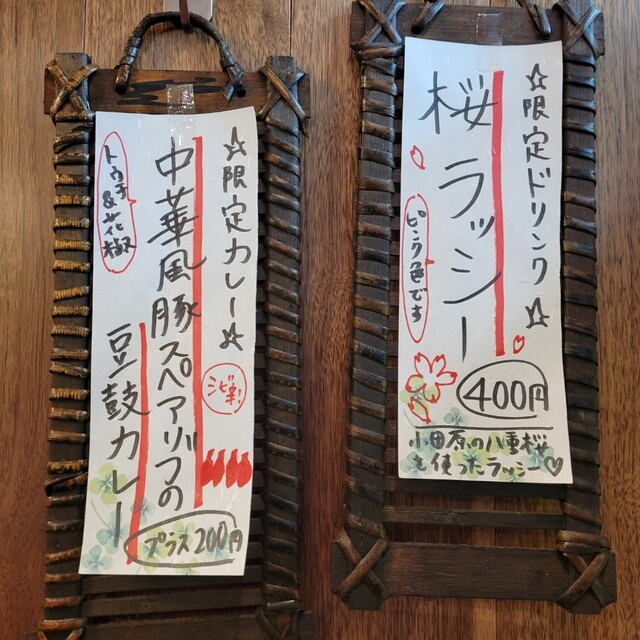 ☆限定ドリンク☆
桜ラッシー
ピンク色です
400円
小田原の八重桜
を使ったラッシー♡
☆限定カレー☆
中華風豚スペアリブの
豆鼓カレー
トウチ&花椒
ジビ辛!
プラス200円